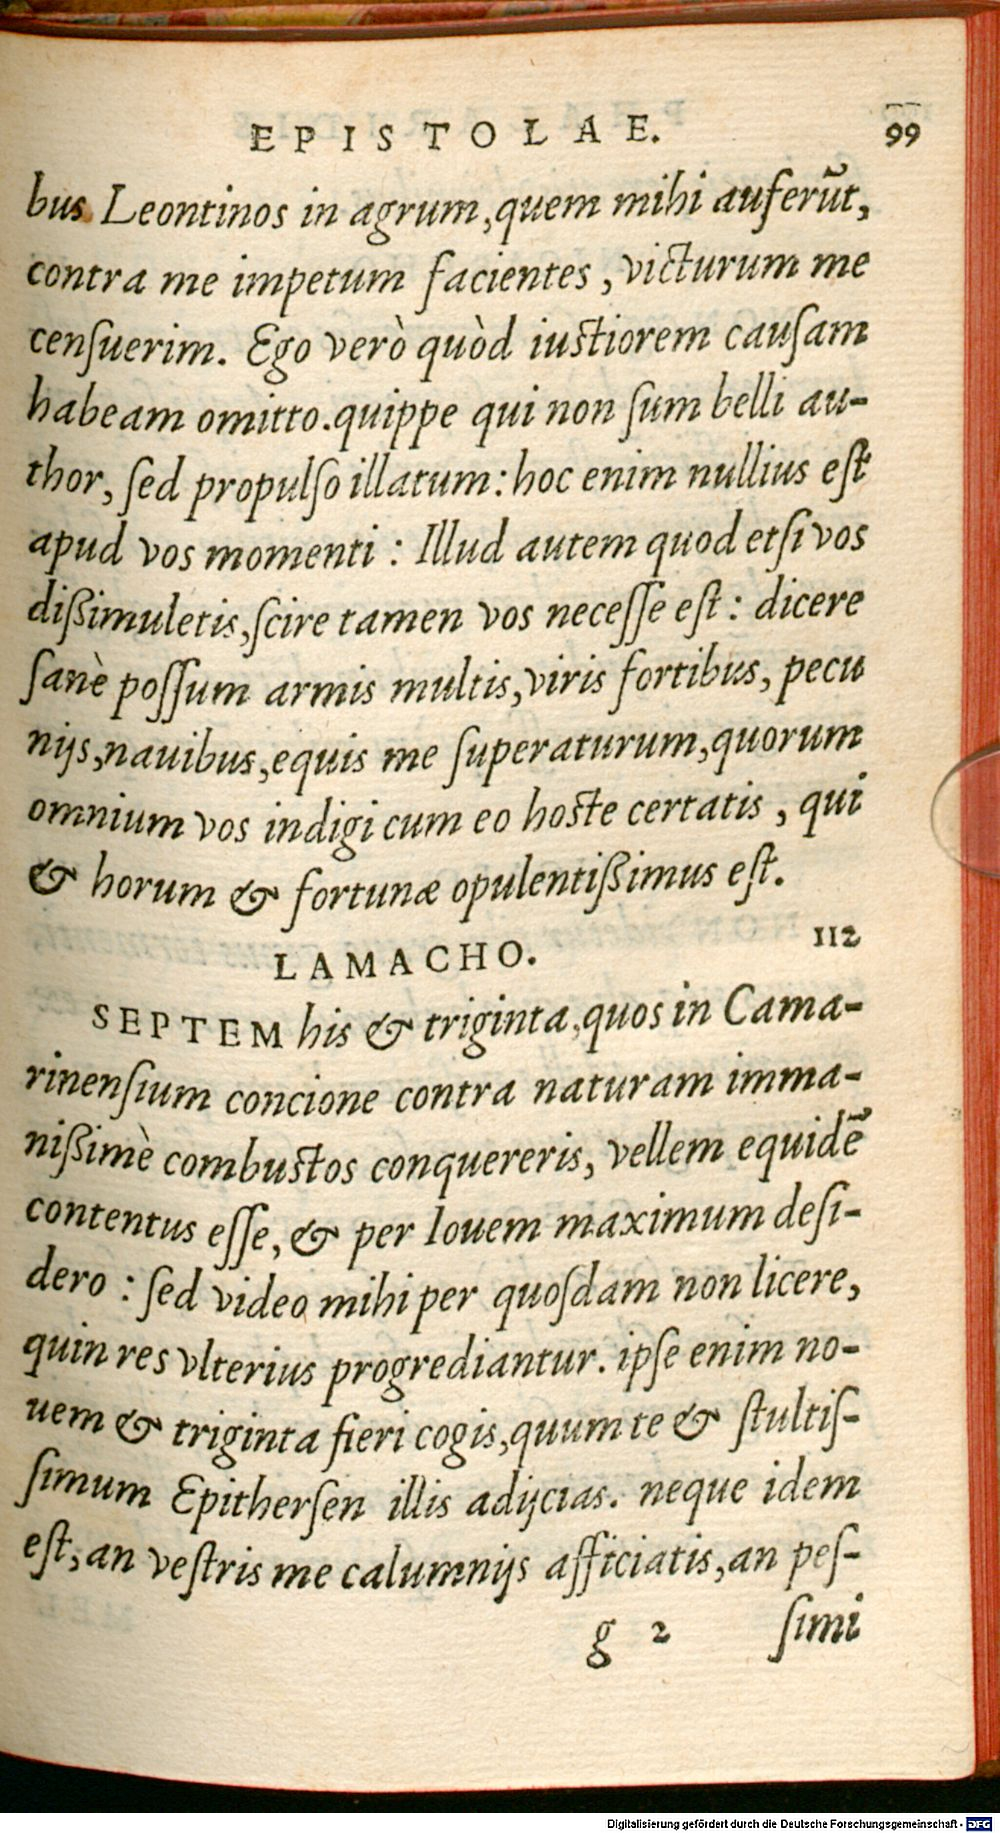 EPISTOLAE. 99
bus Leontinos in agrum, quem mihi auferūt,
contra me impetum facientes, victurum me
cenſuerim. Ego verò quòd iuſtiorem cauſam
habeam omitto. quippe qui non ſum belli au-
thor, ſed propulſo illatum: hoc enim nullius eſt
apud vos momenti: Illud autem quod etſi vos
dißimuletis, ſcire tamen vos neceſſe eſt: dicere
ſanè poſſum armis multis, viris fortibus, pecu
nijs, nauibus, equis me ſuperaturum, quorum
omnium vos indigi cum eo hoſte certatis, qui
& horum & fortunæ opulentißimus eſt.
LAMACHO. 112
SEPTEM his & triginta, quos in Cama-
rinenſium concione contra naturam imma-
nißimè combuſtos conquereris, vellem equidē
contentus eſſe, & per Iouem maximum deſi-
dero: ſed video mihi per quoſdam non licere,
quin res vlterius progrediantur. ipſe enim no-
uem & triginta fieri cogis, quum te & ſtultiſ-
ſimum Epitherſen illis adijcias. neque idem
eſt, an veſtris me calumnijs afficiatis, an peſ-
g 2 ſimi
Digitalisierung gefördert durch die Deutsche Forschungsgemeinschaft - DFG